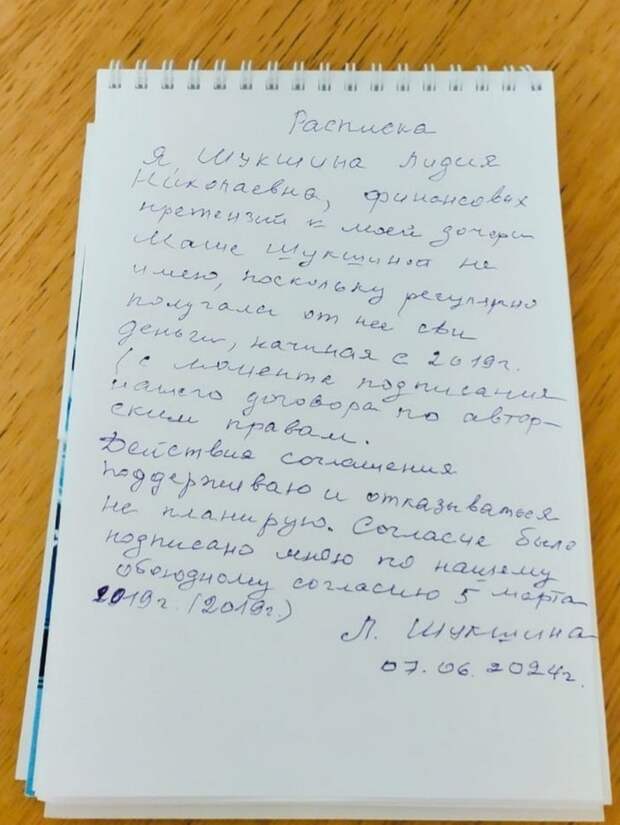 Расписка
Я Шукшина Лидия
Николаевна, финансовых
претензий к моей дочери
Маше Шукшиной не
имею, поскольку регулярно
получала от нее сви
деньги, начиная с 2019г.
(с момента подписания
нашего договора по автор-
ским правам.
Действия соглашения
поддерживаю и отказываться
не планирую. Согласие было
подписано мною по нашему
обоюдному согласию 5 марта
2019г. (2019г.)
Л. Шукшина
07.06.2024г.